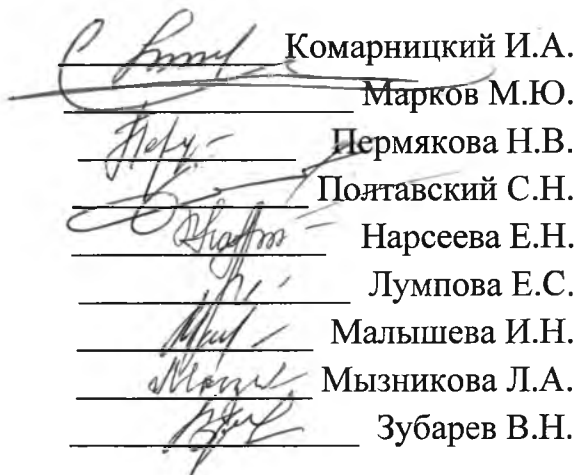 Комарницкий И.А.
Марков М.Ю.
Пермякова Н.В.
Полтавский С.Н.
Нарсеева Е.Н.
Лумпова Е.С.
Малышева И.Н.
Мызникова Л.А.
Зубарев В.Н.